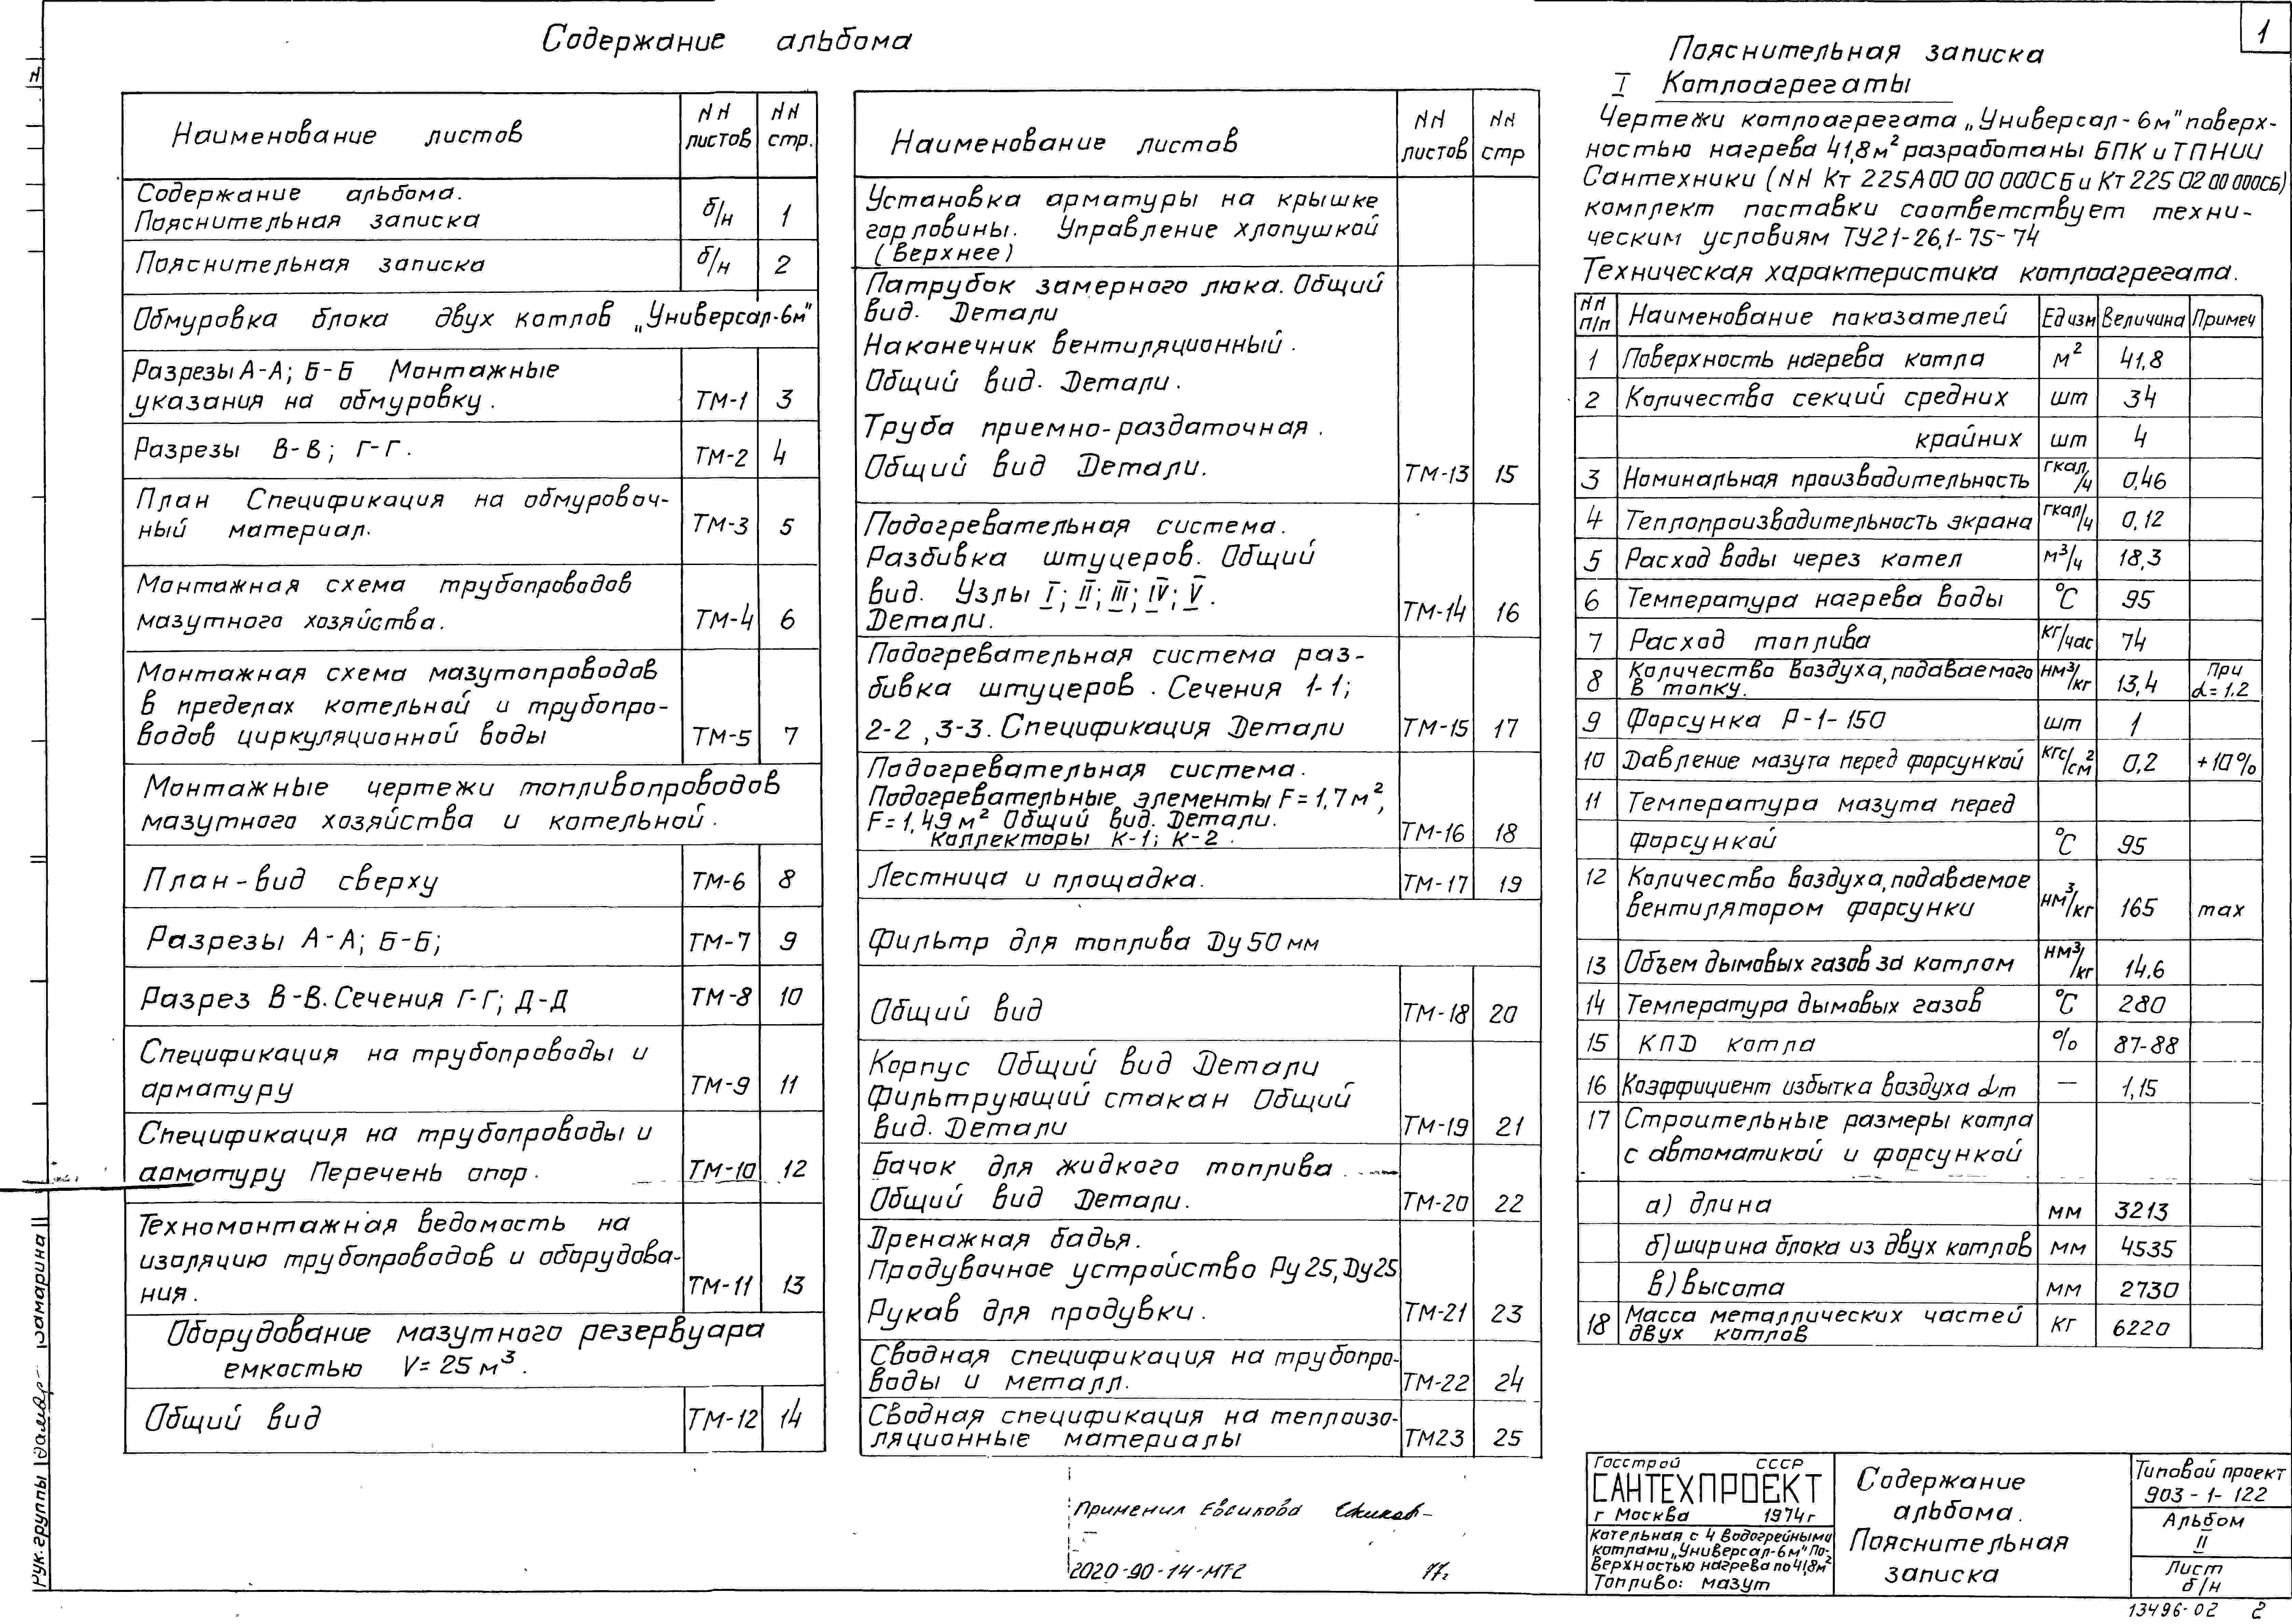 1
Содержание альбома
Наименование листов
NN листов
NN стр.
Содержание альбома.
Пояснительная записка б/н 1
Пояснительная записка б/н 2
Обмуровка блока двух котлов „Универсал-6м"
Разрезы А-А; Б-Б Монтажные
указания на обмуровку. ТМ-1 3
Разрезы В-В; Г-Г. ТМ-2 4
План Спецификация на обмуровоч-
ный материал. ТМ-3 5
Монтажная схема трубопроводов
мазутного хозяйства. ТМ-4 6
Монтажная схема мазутопроводов
в пределах котельной и трубопро-
водов циркуляционной воды ТМ-5 7
Монтажные чертежи топливопроводов
мазутного хозяйства и котельной.
План-вид сверху ТМ-6 8
Разрезы А-А; Б-Б; ТМ-7 9
Разрез В-В. Сечения Г-Г; Д-Д ТМ-8 10
Спецификация на трубопроводы и
арматуру ТМ-9 11
Спецификация на трубопроводы и
арматуру Перечень опор. ТМ-10 12
Техномонтажная ведомость на
изоляцию трубопроводов и оборудова-
ния. ТМ-11 13
Оборудование мазутного резервуара
емкостью V=25 м³.
Общий вид ТМ-12 14
Наименование листов
NN листов
NN стр
Установка арматуры на крышке
горловины. Управление хлопушкой
(верхнее)
Патрубок замерного люка. Общий
вид. Детали
Наконечник вентиляционный.
Общий вид. Детали.
Труба приемно-раздаточная.
Общий вид Детали. ТМ-13 15
Подогревательная система.
Разбивка штуцеров. Общий
вид. Узлы I; II; III; IV; V.
Детали. ТМ-14 16
Подогревательная система раз-
бивка штуцеров. Сечения 1-1;
2-2, 3-3. Спецификация Детали ТМ-15 17
Подогревательная система.
Подогревательные элементы F=1,7м²,
F=1,49м² Общий вид. Детали.
Коллекторы К-1; К-2. ТМ-16 18
Лестница и площадка. ТМ-17 19
Фильтр для топлива Ду 50 мм
Общий вид ТМ-18 20
Корпус Общий вид Детали
Фильтрующий стакан Общий
вид. Детали ТМ-19 21
Бачок для жидкого топлива.
Общий вид Детали. ТМ-20 22
Дренажная бадья.
Продувочное устройство Ру 25, Ду 25
Рукав для продувки. ТМ-21 23
Сводная спецификация на трубопро-
воды и металл. ТМ-22 24
Сводная спецификация на теплоизо-
ляционные материалы ТМ23 25
Пояснительная записка
I Котлоагрегаты
Чертежи котлоагрегата „Универсал-6м" поверх-
ностью нагрева 41,8м² разработаны БПК и ТПНИИ
Сантехники (NN Кт 225А00 00 000СБ и Кт 225 02 00 000СБ)
комплект поставки соответствует техни-
ческим условиям ТУ21-26,1-75-74
Техническая характеристика котлоагрегата.
NN п/п Наименование показателей Ед изм Величина Примеч
1 Поверхность нагрева котла м² 41,8
2 Количество секций средних шт 34
крайних шт 4
3 Номинальная производительность гкал/ч 0,46
4 Теплопроизводительность экрана гкал/ч 0,12
5 Расход воды через котел м³/ч 18,3
6 Температура нагрева воды °С 95
7 Расход топлива кг/час 74
8 Количество воздуха, подаваемого
в топку. нм³/кг 13,4 При α=1,2
9 Форсунка Р-1-150 шт 1
10 Давление мазута перед форсункой кгс/см² 0,2 +10%
11 Температура мазута перед
форсункой °С 95
12 Количество воздуха, подаваемое
вентилятором форсунки нм³/кг 165 max
13 Объем дымовых газов за котлом нм³/кг 14,6
14 Температура дымовых газов °С 280
15 КПД котла % 87-88
16 Коэффициент избытка воздуха αт — 1,15
17 Строительные размеры котла
с автоматикой и форсункой
а) длина мм 3213
б) ширина блока из двух котлов мм 4535
в) высота мм 2730
18 Масса металлических частей
двух котлов кг 6220
Госстрой СССР
САНТЕХПРОЕКТ
г Москва 1974г
Котельная с 4 водогрейными
котлами „Универсал-6м" По-
верхностью нагрева по 41,8м²
Топливо: мазут
Содержание
альбома.
Пояснительная
записка
Типовой проект
903-1-122
Альбом
II
Лист
б/н
13496-02 2
Применил Евсикова
2020-90-14-МТ2
Рук. группы
N